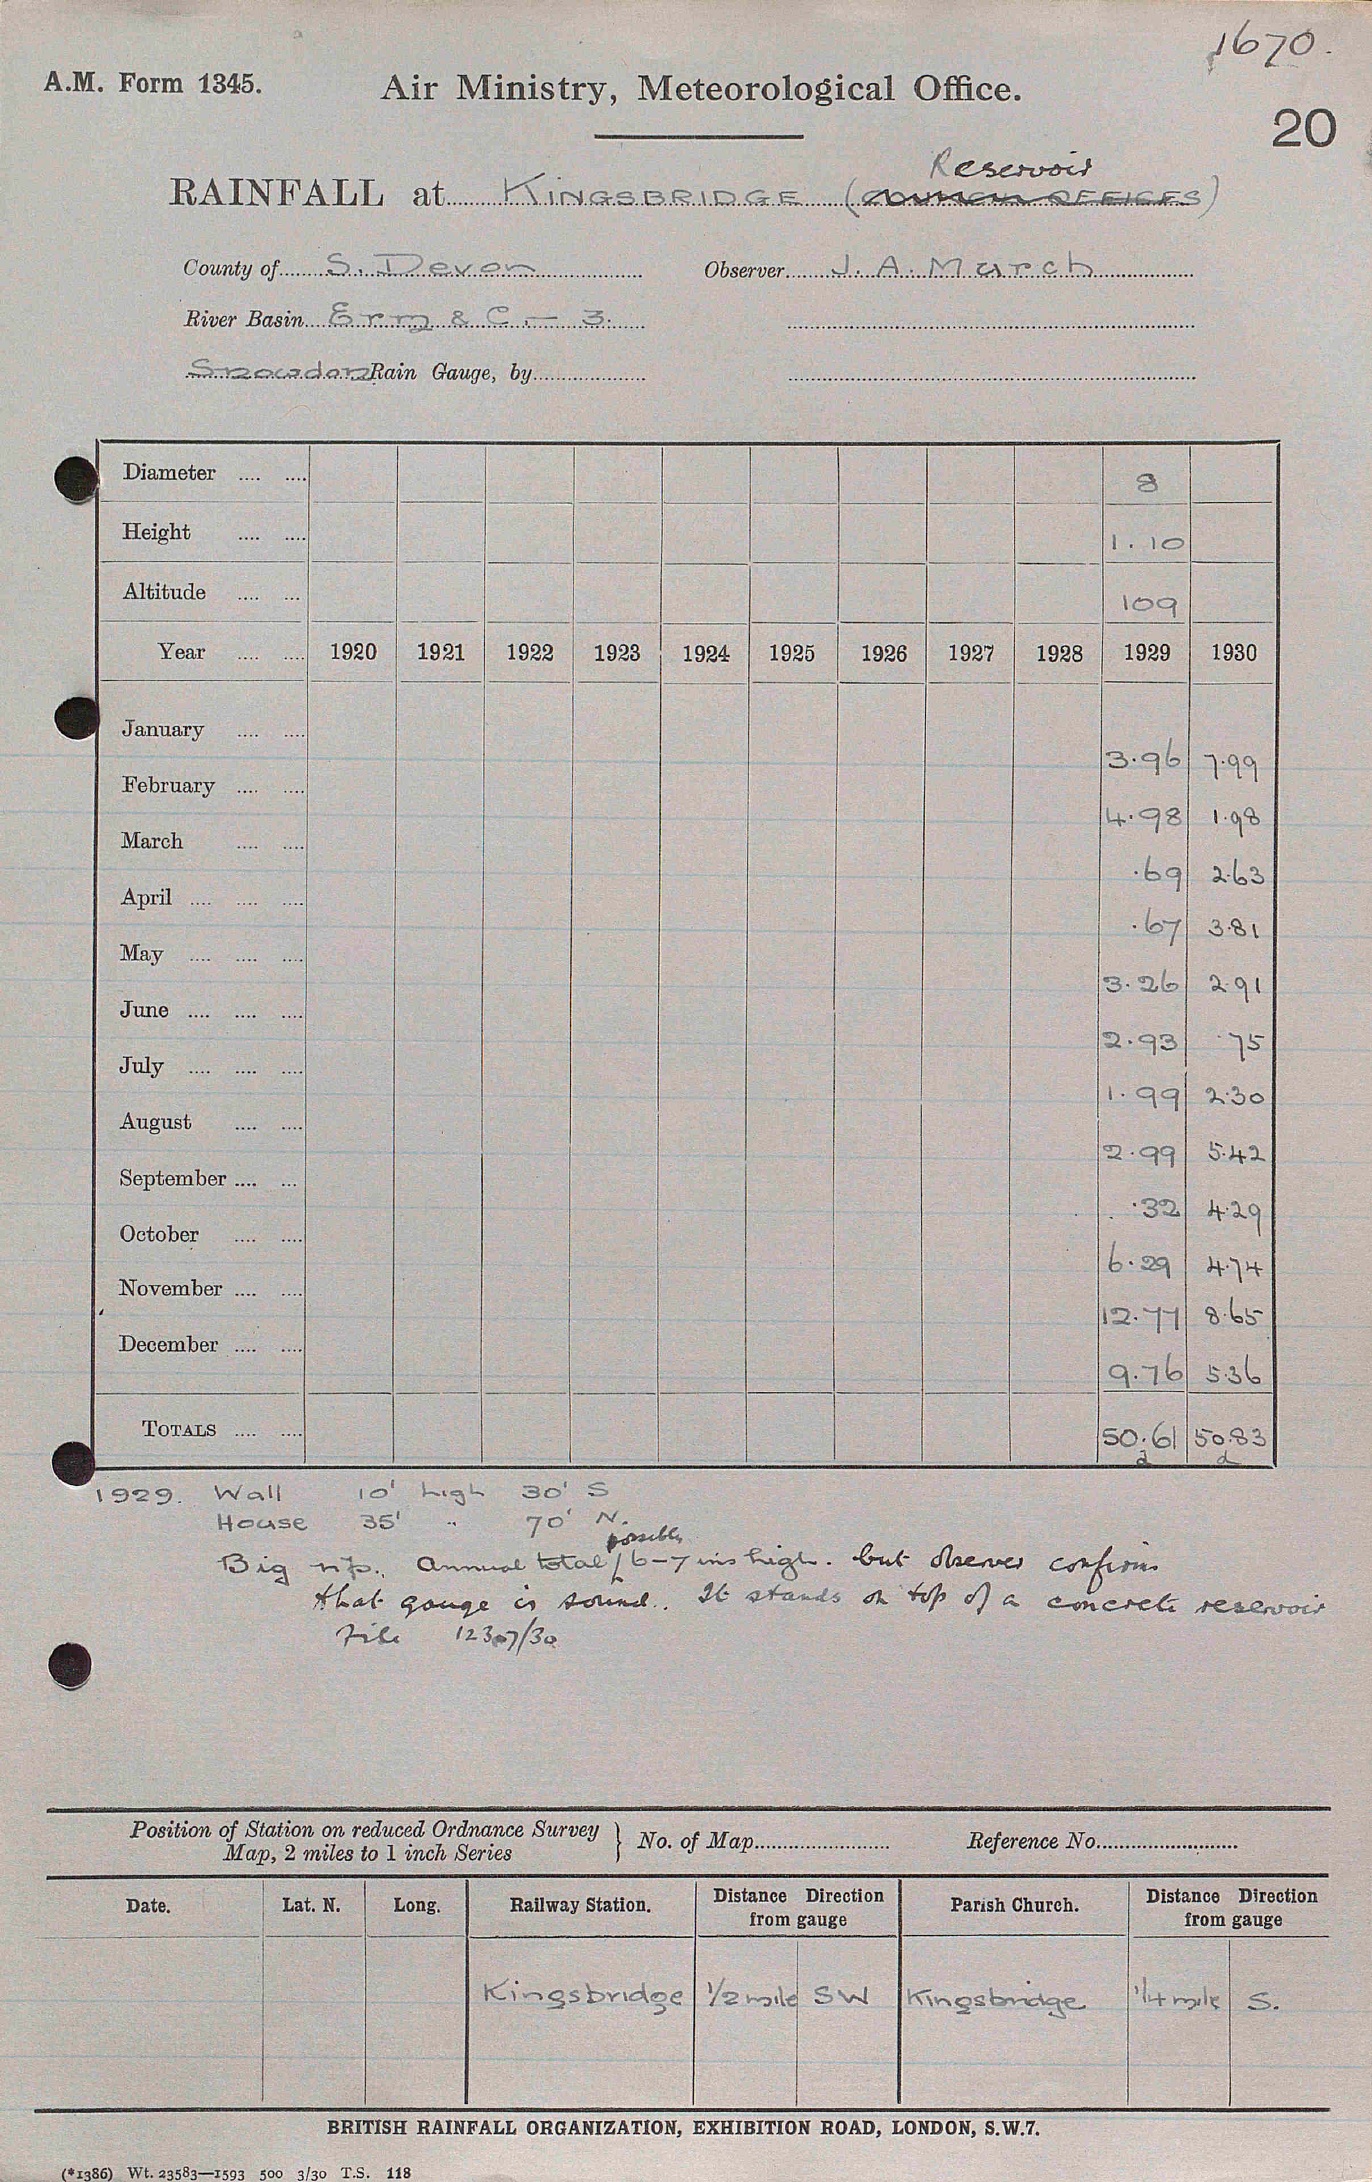 1670.
A.M. Form 1345. Air Ministry, Meteorological Office.
20
Reservoir
RAINFALL at KINGSBRIDGE (COUNCIL OFFICES)
County of S. Devon Observer J. A. March
River Basin Erm & C. — 3.
Snowdon Rain Gauge, by
Diameter 8
Height 1.10
Altitude 109
Year 1920 1921 1922 1923 1924 1925 1926 1927 1928 1929 1930
January 3.96 7.99
February 4.98 1.98
March .69 2.63
April .67 3.81
May 3.26 2.91
June 2.93 .75
July 1.99 2.30
August 2.99 5.42
September .32 4.29
October 6.29 4.74
November 12.77 8.65
December 9.76 5.36
TOTALS 50.61 50.83
d d
1929. Wall 10' high 30' S
House 35' " 70' N.
possibly
Big Annual total 6-7 ins high. but observer confirms
that gauge is sound. It stands on top of a concrete reservoir
File 12307/30
Position of Station on reduced Ordnance Survey
Map, 2 miles to 1 inch Series } No. of Map Reference No.
Date. Lat. N. Long. Railway Station. Distance Direction from gauge Parish Church. Distance Direction from gauge
Kingsbridge 1/2 mile SW Kingsbridge 1/4 mile S.
BRITISH RAINFALL ORGANIZATION, EXHIBITION ROAD, LONDON, S.W.7.
(*1386) Wt. 23583—1593 500 3/30 T.S. 118